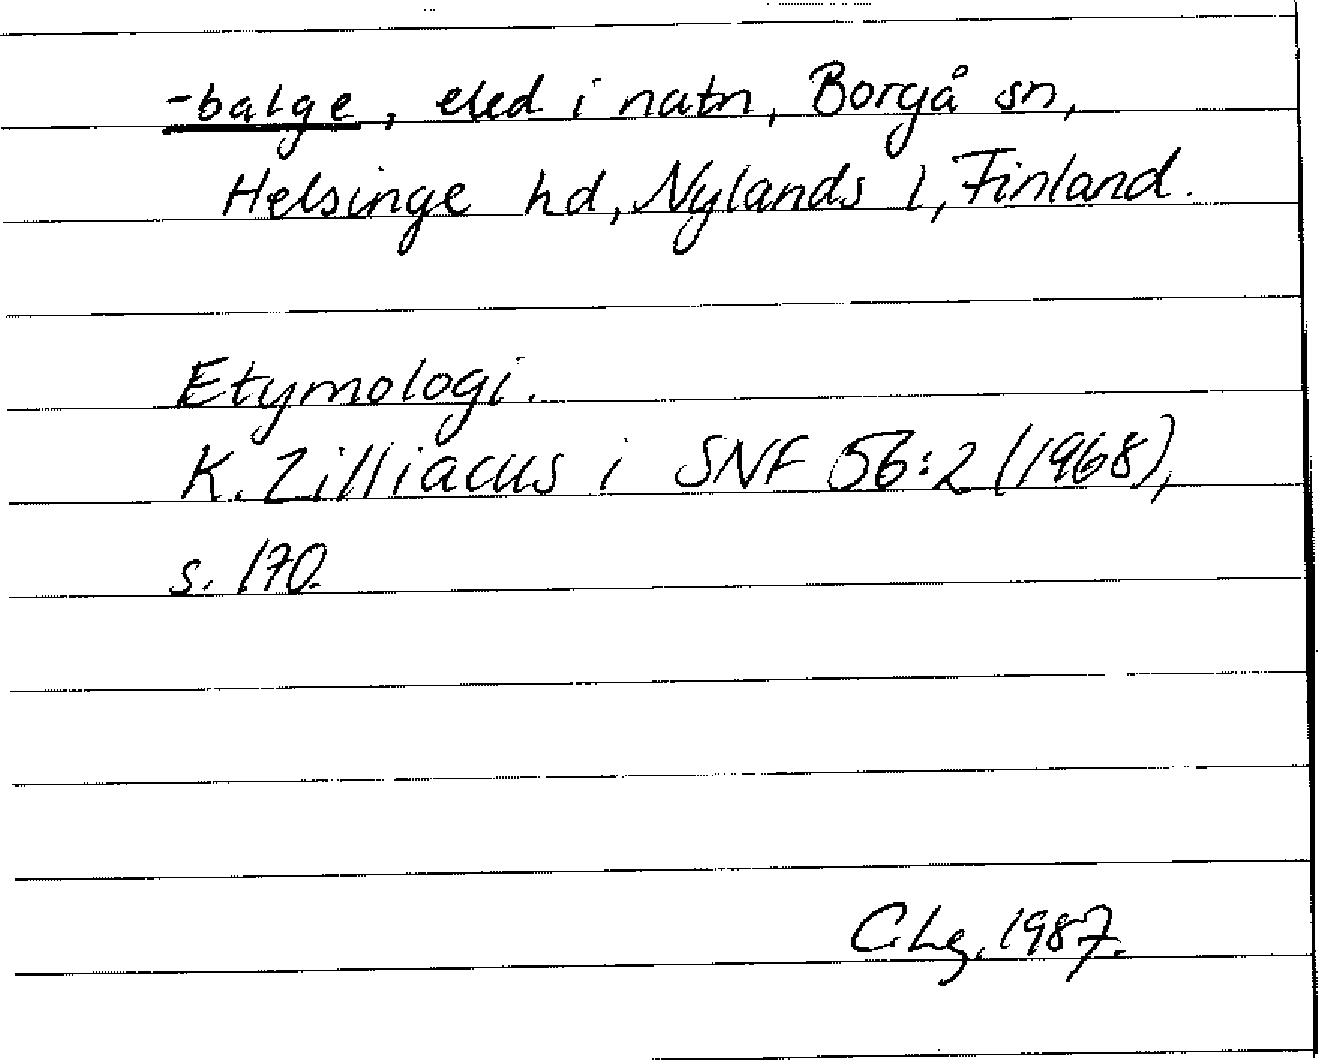 -balge, eled i natn, Borgå sn,
Helsinge hd, Nylands l, Finland.
Etymologi.
K. Zilliacus i SNF 56:2 (1968),
s. 170.
C. Lg, 1987.